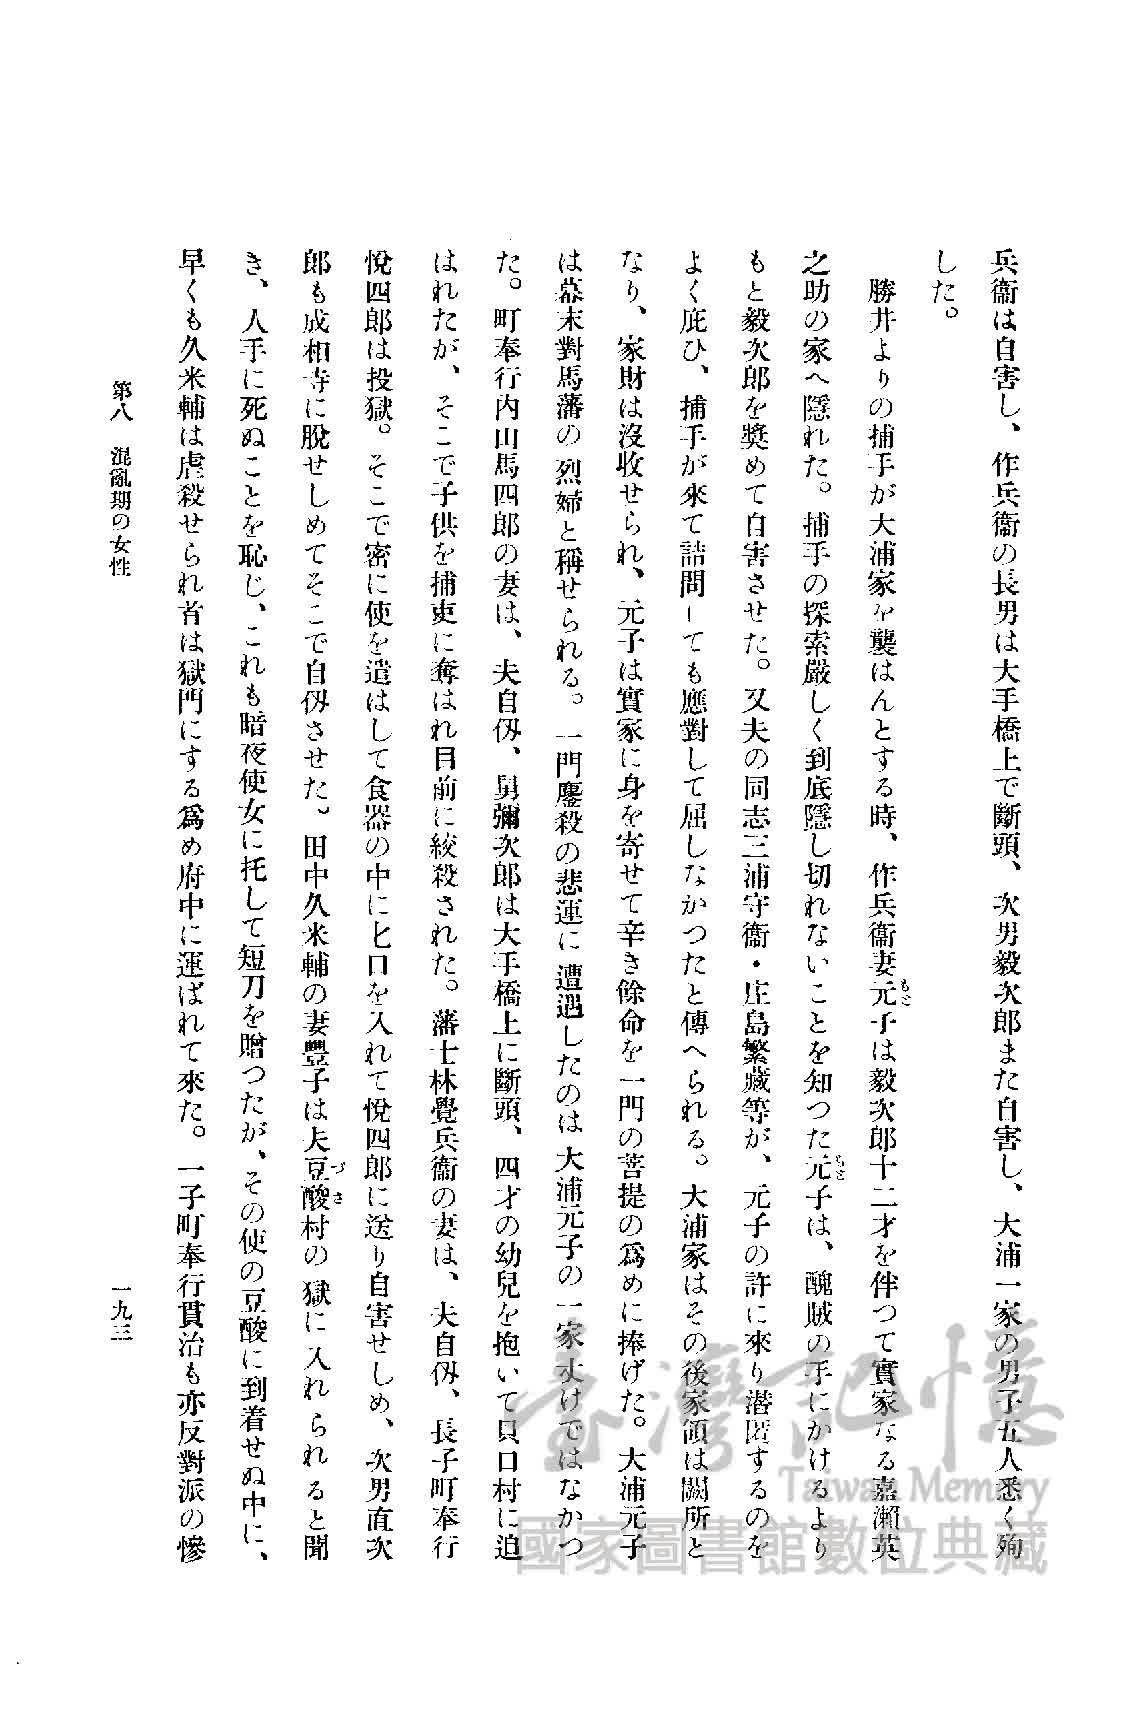 兵衞は自害し、作兵衞の長男は大手橋上で斷頭、次男毅次郎また自害し、大浦一家の男子五人悉く殉
した。
勝井よりの捕手が大浦家を襲はんとする時、作兵衞妻元子は毅次郎十二才を伴つて實家なる嘉瀨英
もと
之助の家へ隱れた。捕手の探索嚴しく到底隱し切れないことを知つた元子は、醜賊の手にかけるより
もと
もと毅次郎を奬めて自害させた。又夫の同志三浦守衞・庄島繁藏等が、元子の許に來り潜匿するのを
よく庇ひ、捕手が來て詰問しても應對して屈しなかつたと傳へられる。大浦家はその後家領は闕所と
なり、家財は沒收せられ、元子は實家に身を寄せて辛き餘命を一門の菩提の爲めに捧げた。大浦元子
は幕末對馬藩の烈婦と稱せられる。一門鏖殺の悲運に遭遇したのは大浦元子の一家丈けではなかつ
た。町奉行內山馬四郎の妻は、夫自刄、舅彌次郎は大手橋上に斷頭、四才の幼兒を抱いて貝口村に追
はれたが、そこで子供を捕吏に奪はれ目前に絞殺された。藩士林覺兵衞の妻は、夫自刄、長子町奉行
悅四郎は投獄。そこで密に使を遣はして食器の中に匕口を入れて悅四郎に送り自害せしめ、次男直次
郎も成相寺に脫せしめてそこで自刄させた。田中久米輔の妻豐子は夫豆酸村の獄に入れられると聞
づさ
き、人手に死ぬことを恥じ、これも暗夜使女に托して短刀を贈つたが、その使の豆酸に到着せぬ中に、
早くも久米輔は虐殺せられ首は獄門にする爲め府中に運ばれて來た。一子町奉行貫治も亦反對派の慘
第八 混亂期の女性
一九三
臺灣記憶
Taiwan Memory
國家圖書館數位典藏